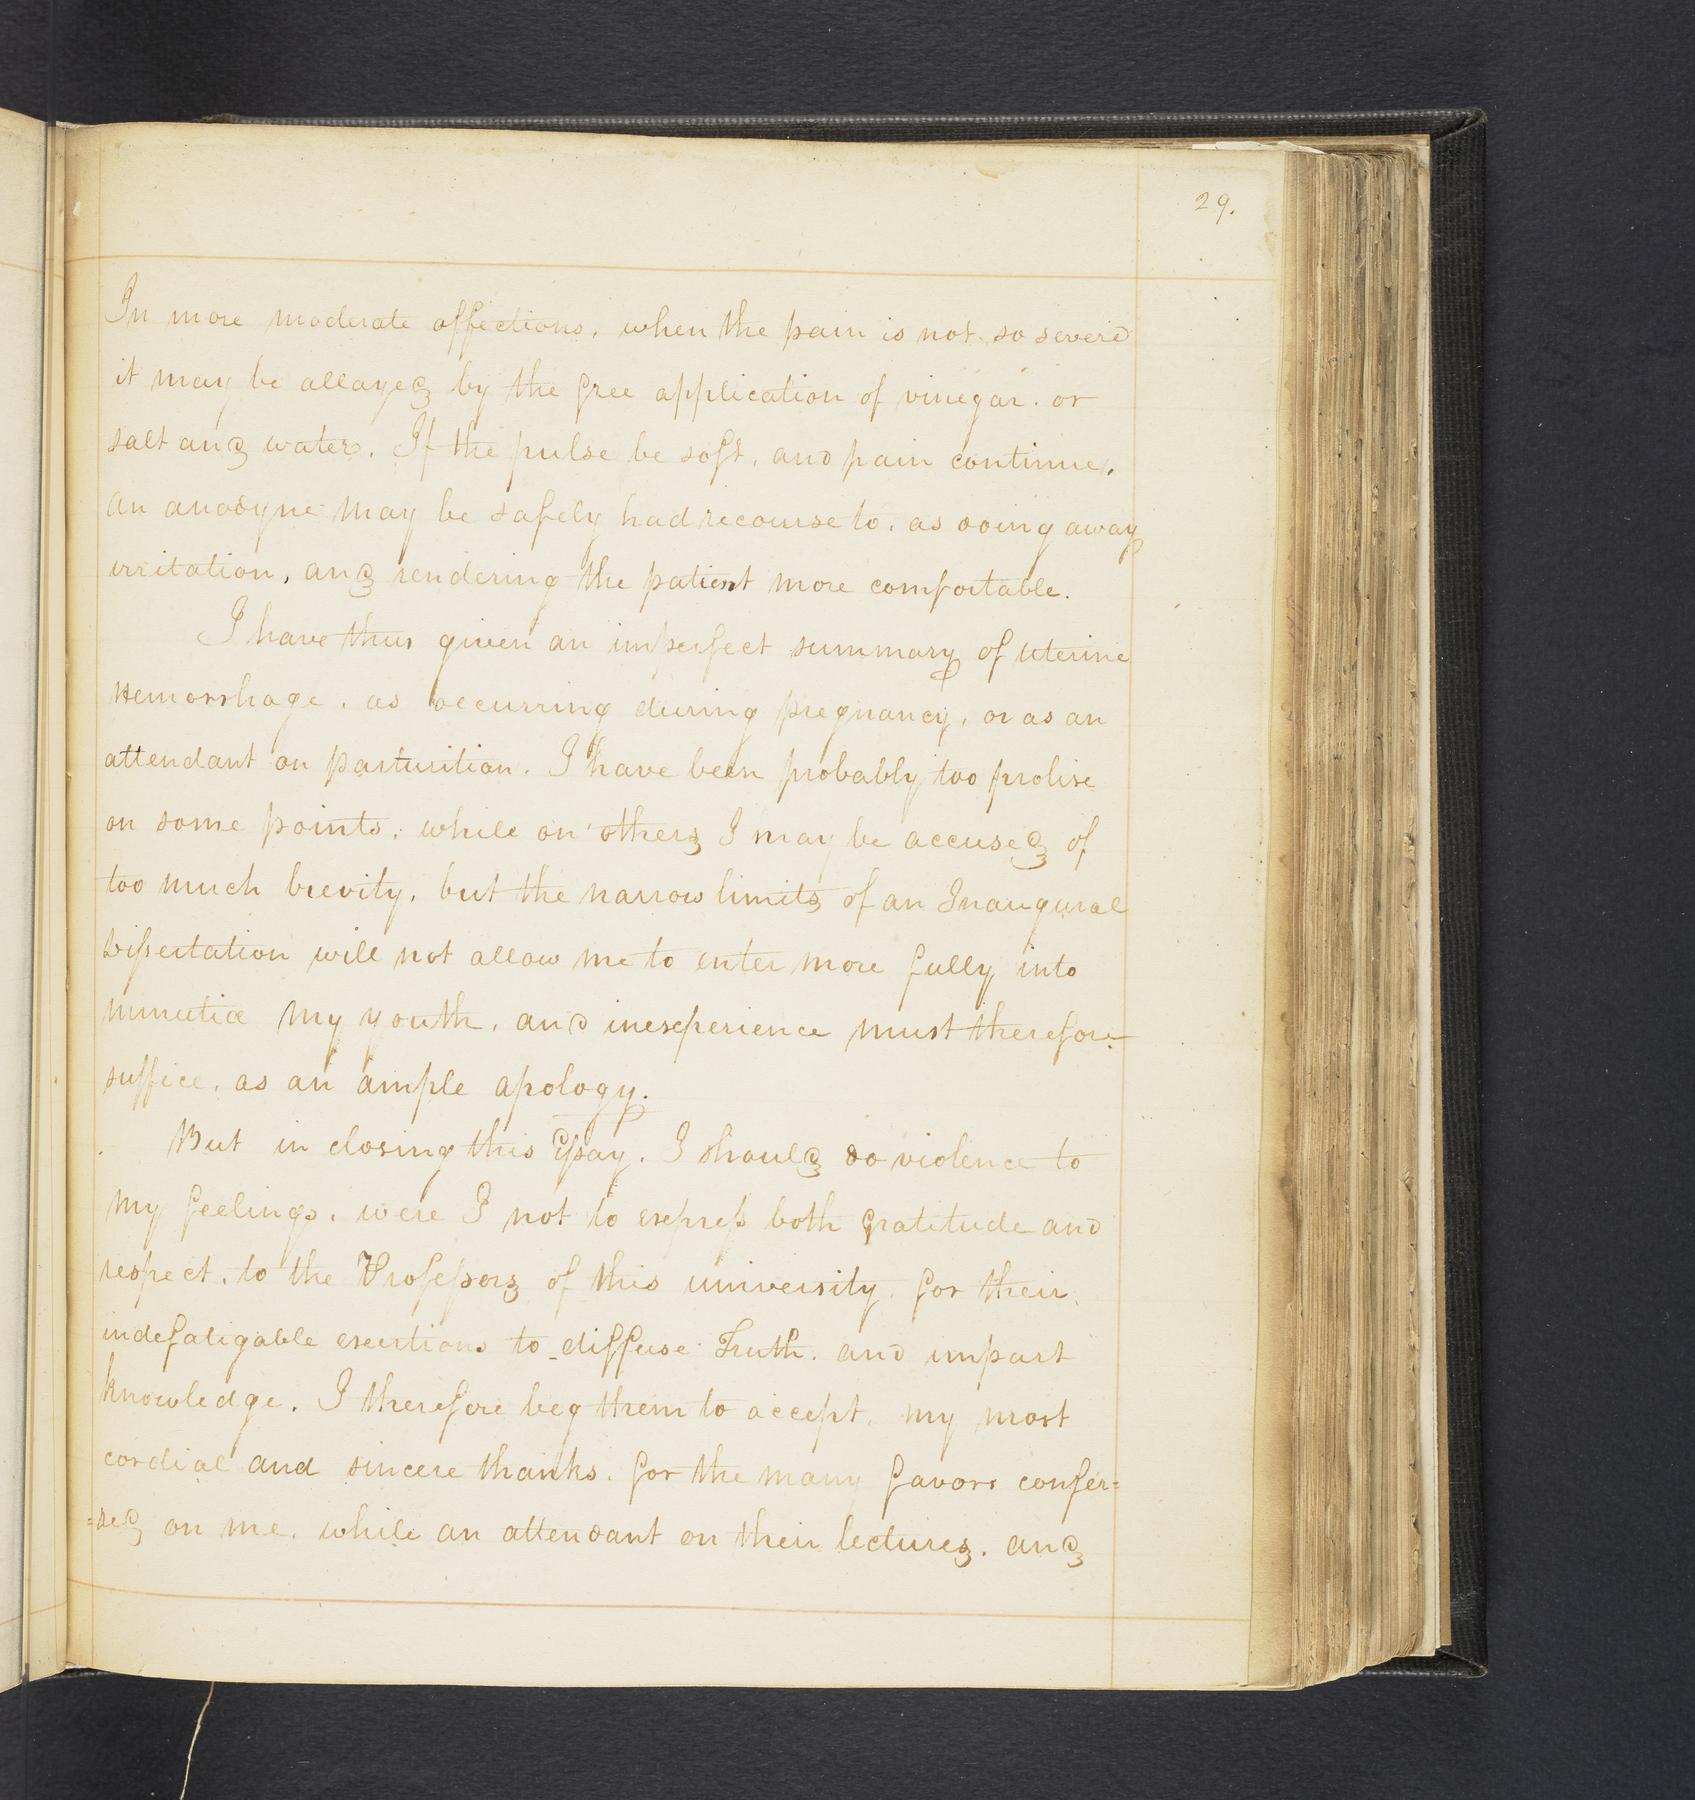 29.
In more moderate affections, when the pain is not so severe
it may be allayed by the free application of vinegar, or
salt and water. If the pulse be soft, and pain continue,
an anodyne may be safely had recourse to, as doing away
irritation, and rendering the patient more comfortable.
I have thus given an imperfect summary of uterine
Hemorrhage, as occurring during pregnancy, or as an
attendant on parturition. I have been probably too prolix
on some points, while on others I may be accused of
too much brevity, but the narrow limits of an Inaugural
Dissertation will not allow me to enter more fully into
minutiæ my youth, and inexperience must therefore
suffice, as an ample apology.
But in closing this Essay, I should do violence to
my feelings, were I not to express both gratitude and
respect, to the Professors of this university, for their
indefatigable exertions to diffuse Truth, and impart
knowledge. I therefore beg them to accept, my most
cordial and sincere thanks, for the many favors confer=
=red on me, while an attendant on their lectures, and